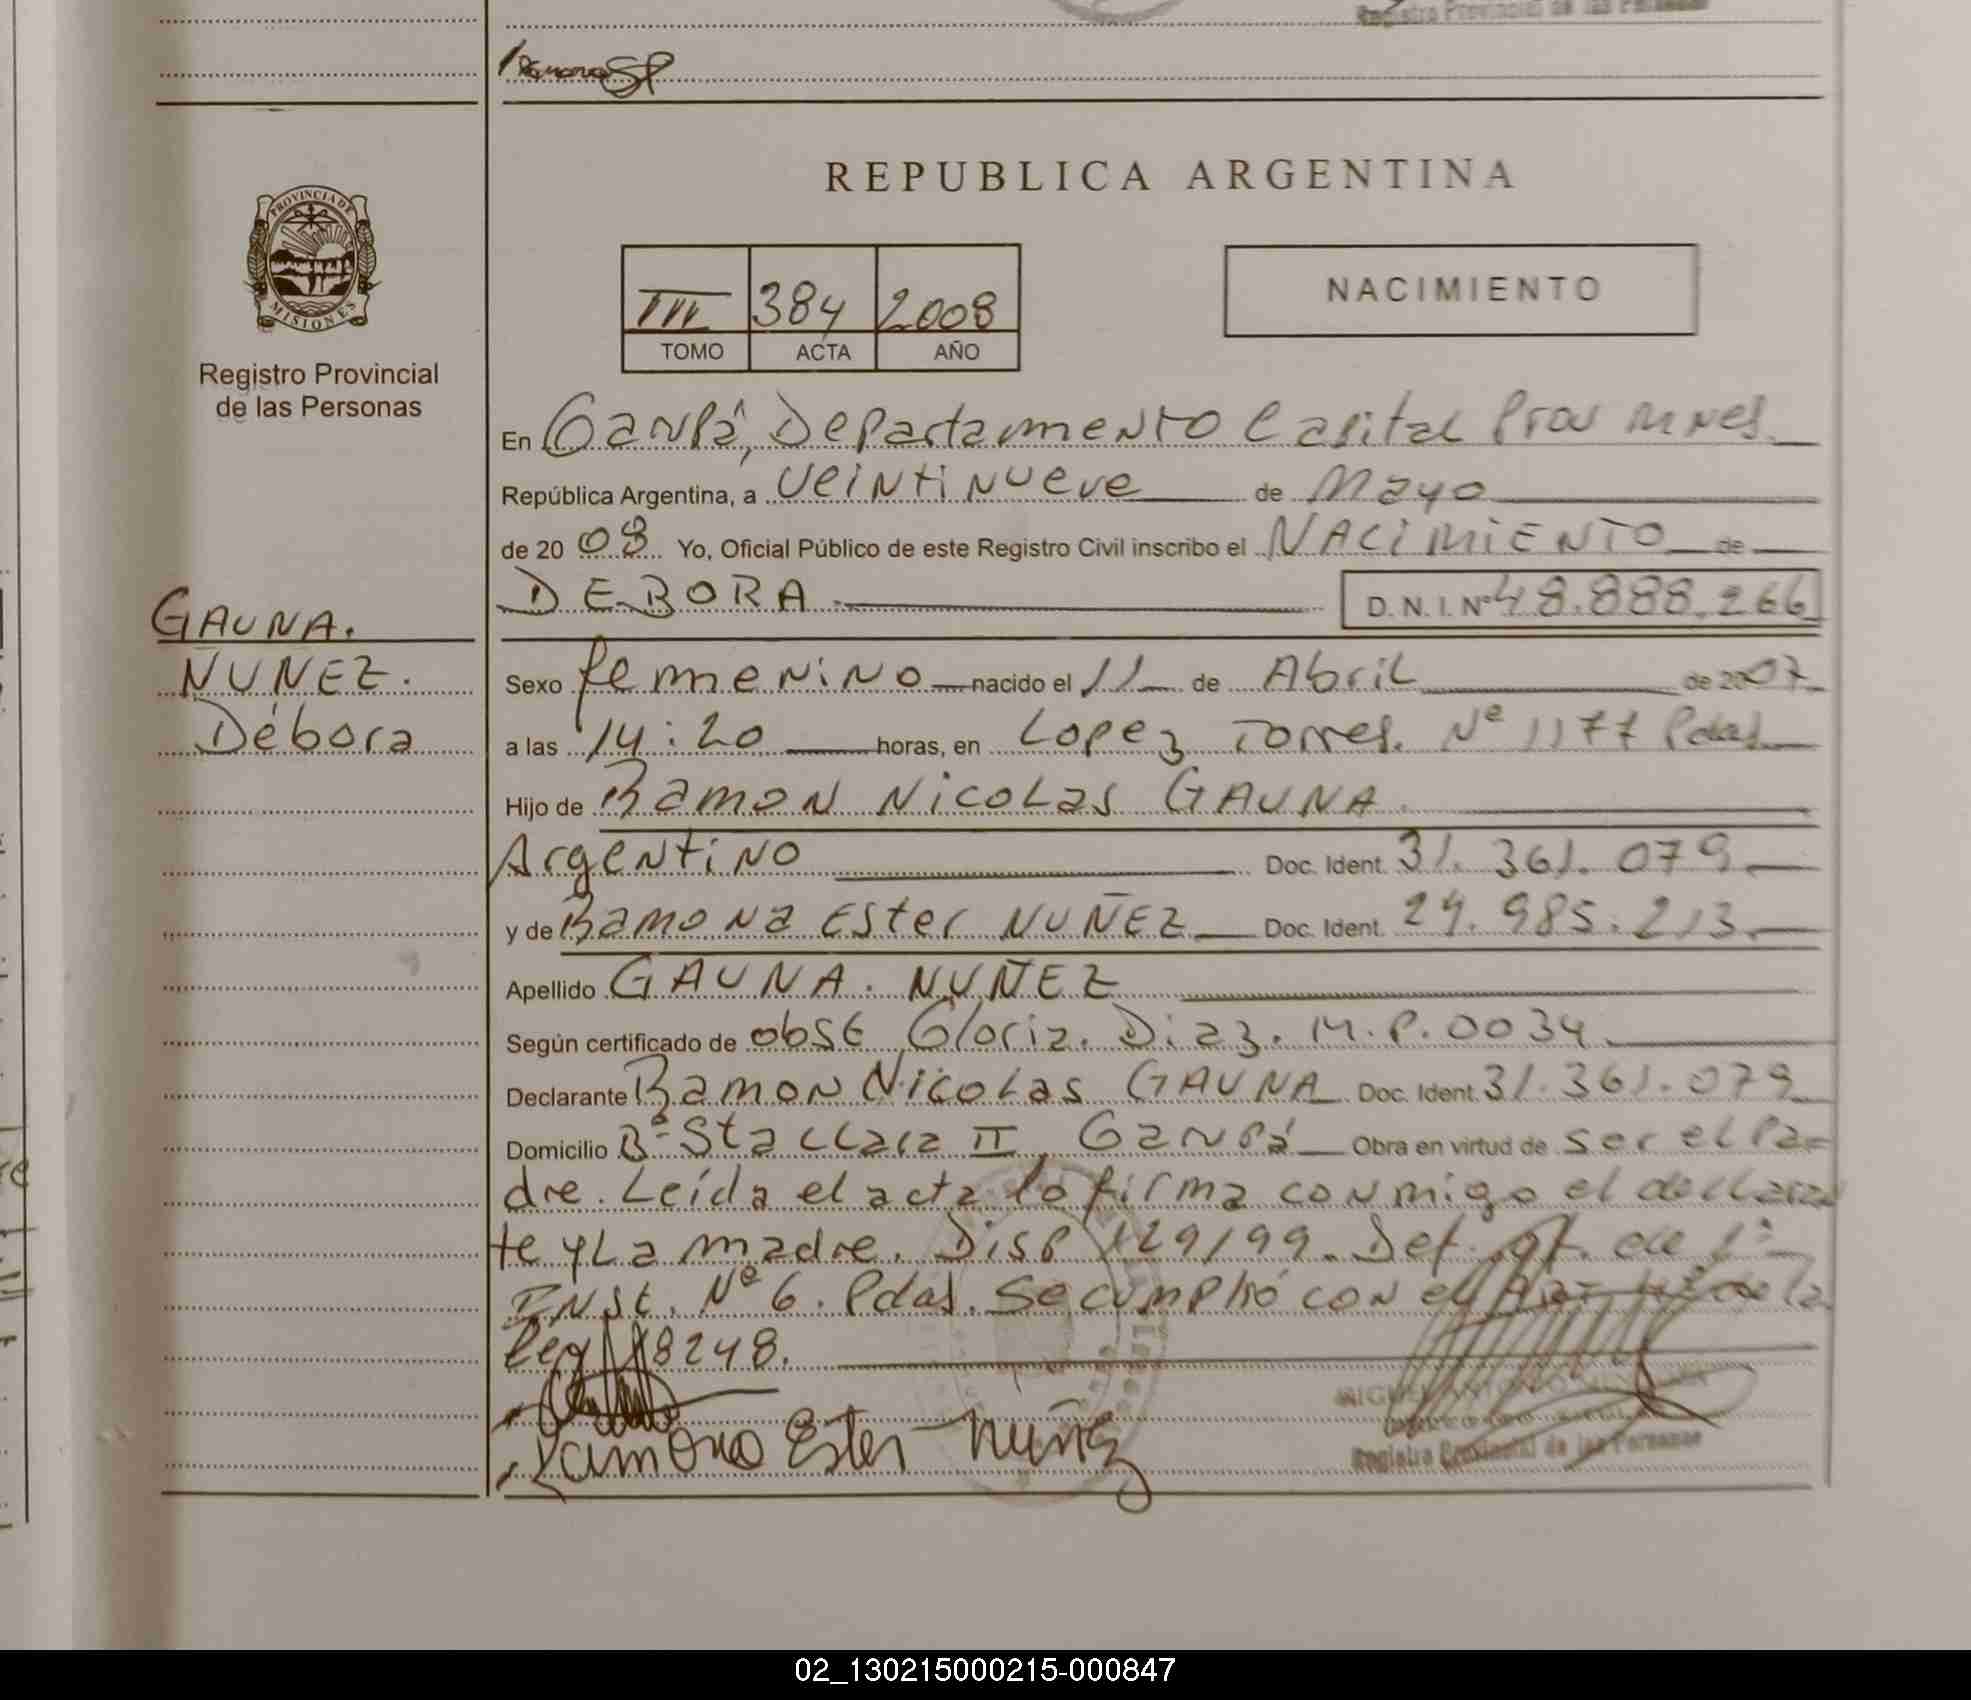 Registro Provincial de las Personas
REPUBLICA ARGENTINA
PROVINCIA DE
MISIONES
Registro Provincial
de las Personas
III 384 2008
TOMO ACTA AÑO
NACIMIENTO
GAUNA.
NUNEZ.
Débora
En Garupá, Departamento Capital Prov Mnes.
República Argentina, a veintinueve de Mayo
de 20 08 Yo, Oficial Público de este Registro Civil inscribo el NACIMIENTO de
DEBORA. D. N. I. Nº 48.888.266
Sexo femenino nacido el 11 de Abril de 2007
a las 14:20 horas, en Lopez Torres. Nº 1177 Pdas
Hijo de Ramon Nicolas GAUNA.
Argentino Doc. Ident. 31.361.079
y de Ramona Ester NUÑEZ Doc. Ident. 29.985.213.
Apellido GAUNA. NUÑEZ
Según certificado de obst Gloria. Diaz. M.P.0034.
Declarante Ramon Nicolas GAUNA Doc. Ident. 31.361.079
Domicilio Bº Sta Clara II, Garupá Obra en virtud de ser el Pa-
dre. Leída el acta lo firma conmigo el declaran
te y La madre. Disp 129/99. Def. of. de 1ª
INst. Nº 6. Pdas. Se cumplió con el de la
Ley 18248.
Ramona Ester Nuñez
MIGUEL ANTONIO
Registro Provincial de las Personas
02_130215000215-000847